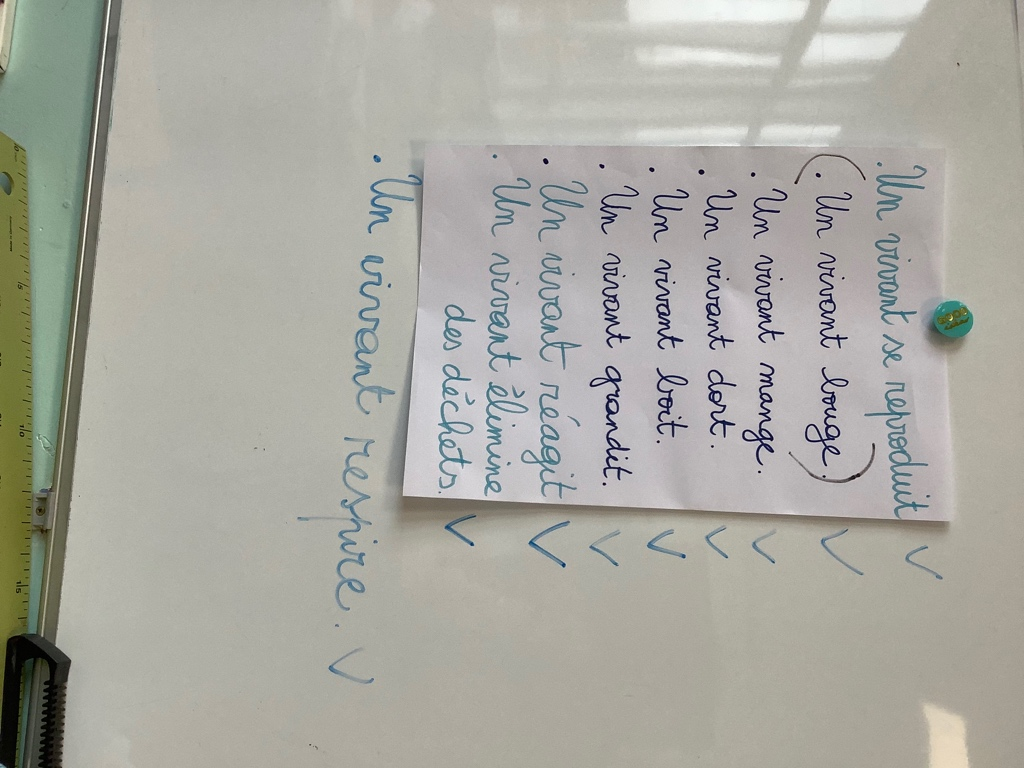 . Un vivant se reproduit
(. Un vivant bouge.)
. Un vivant mange.
. Un vivant dort.
. Un vivant boit.
. Un vivant grandit.
. Un vivant réagit
. Un vivant élimine
des déchets.
. Un vivant respire.